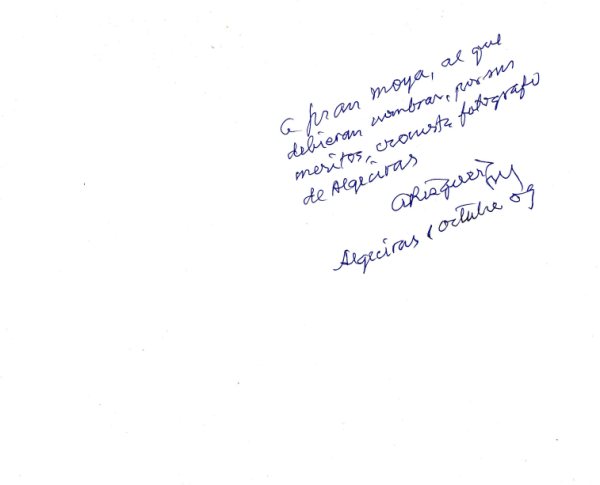 A fran moya, al que
debieran nombrar, por sus
meritos, cronista fotografo
de Algeciras
Algeciras, octubre 09